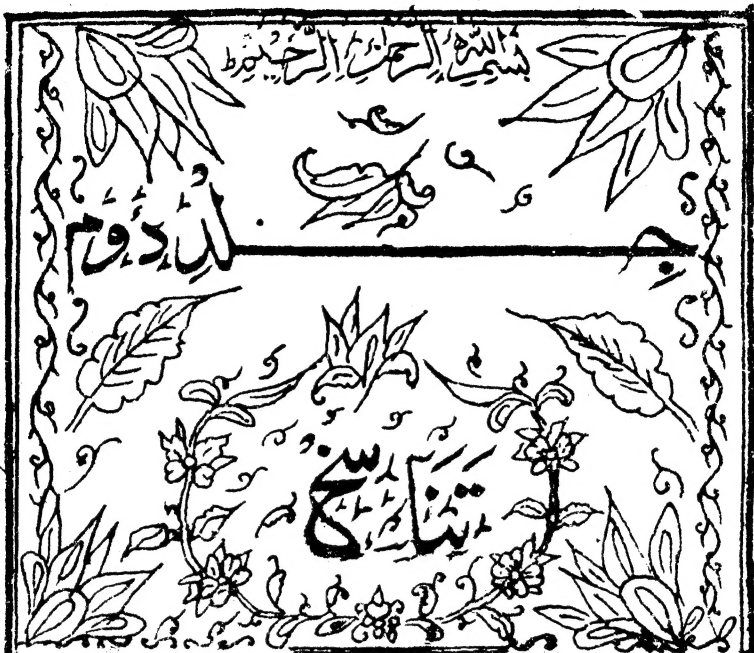 بِسْمِ اللّٰهِ الرَّحْمٰنِ الرَّحِيْمِ ط
جِلدِ دُوَم
تَنَاسُخ